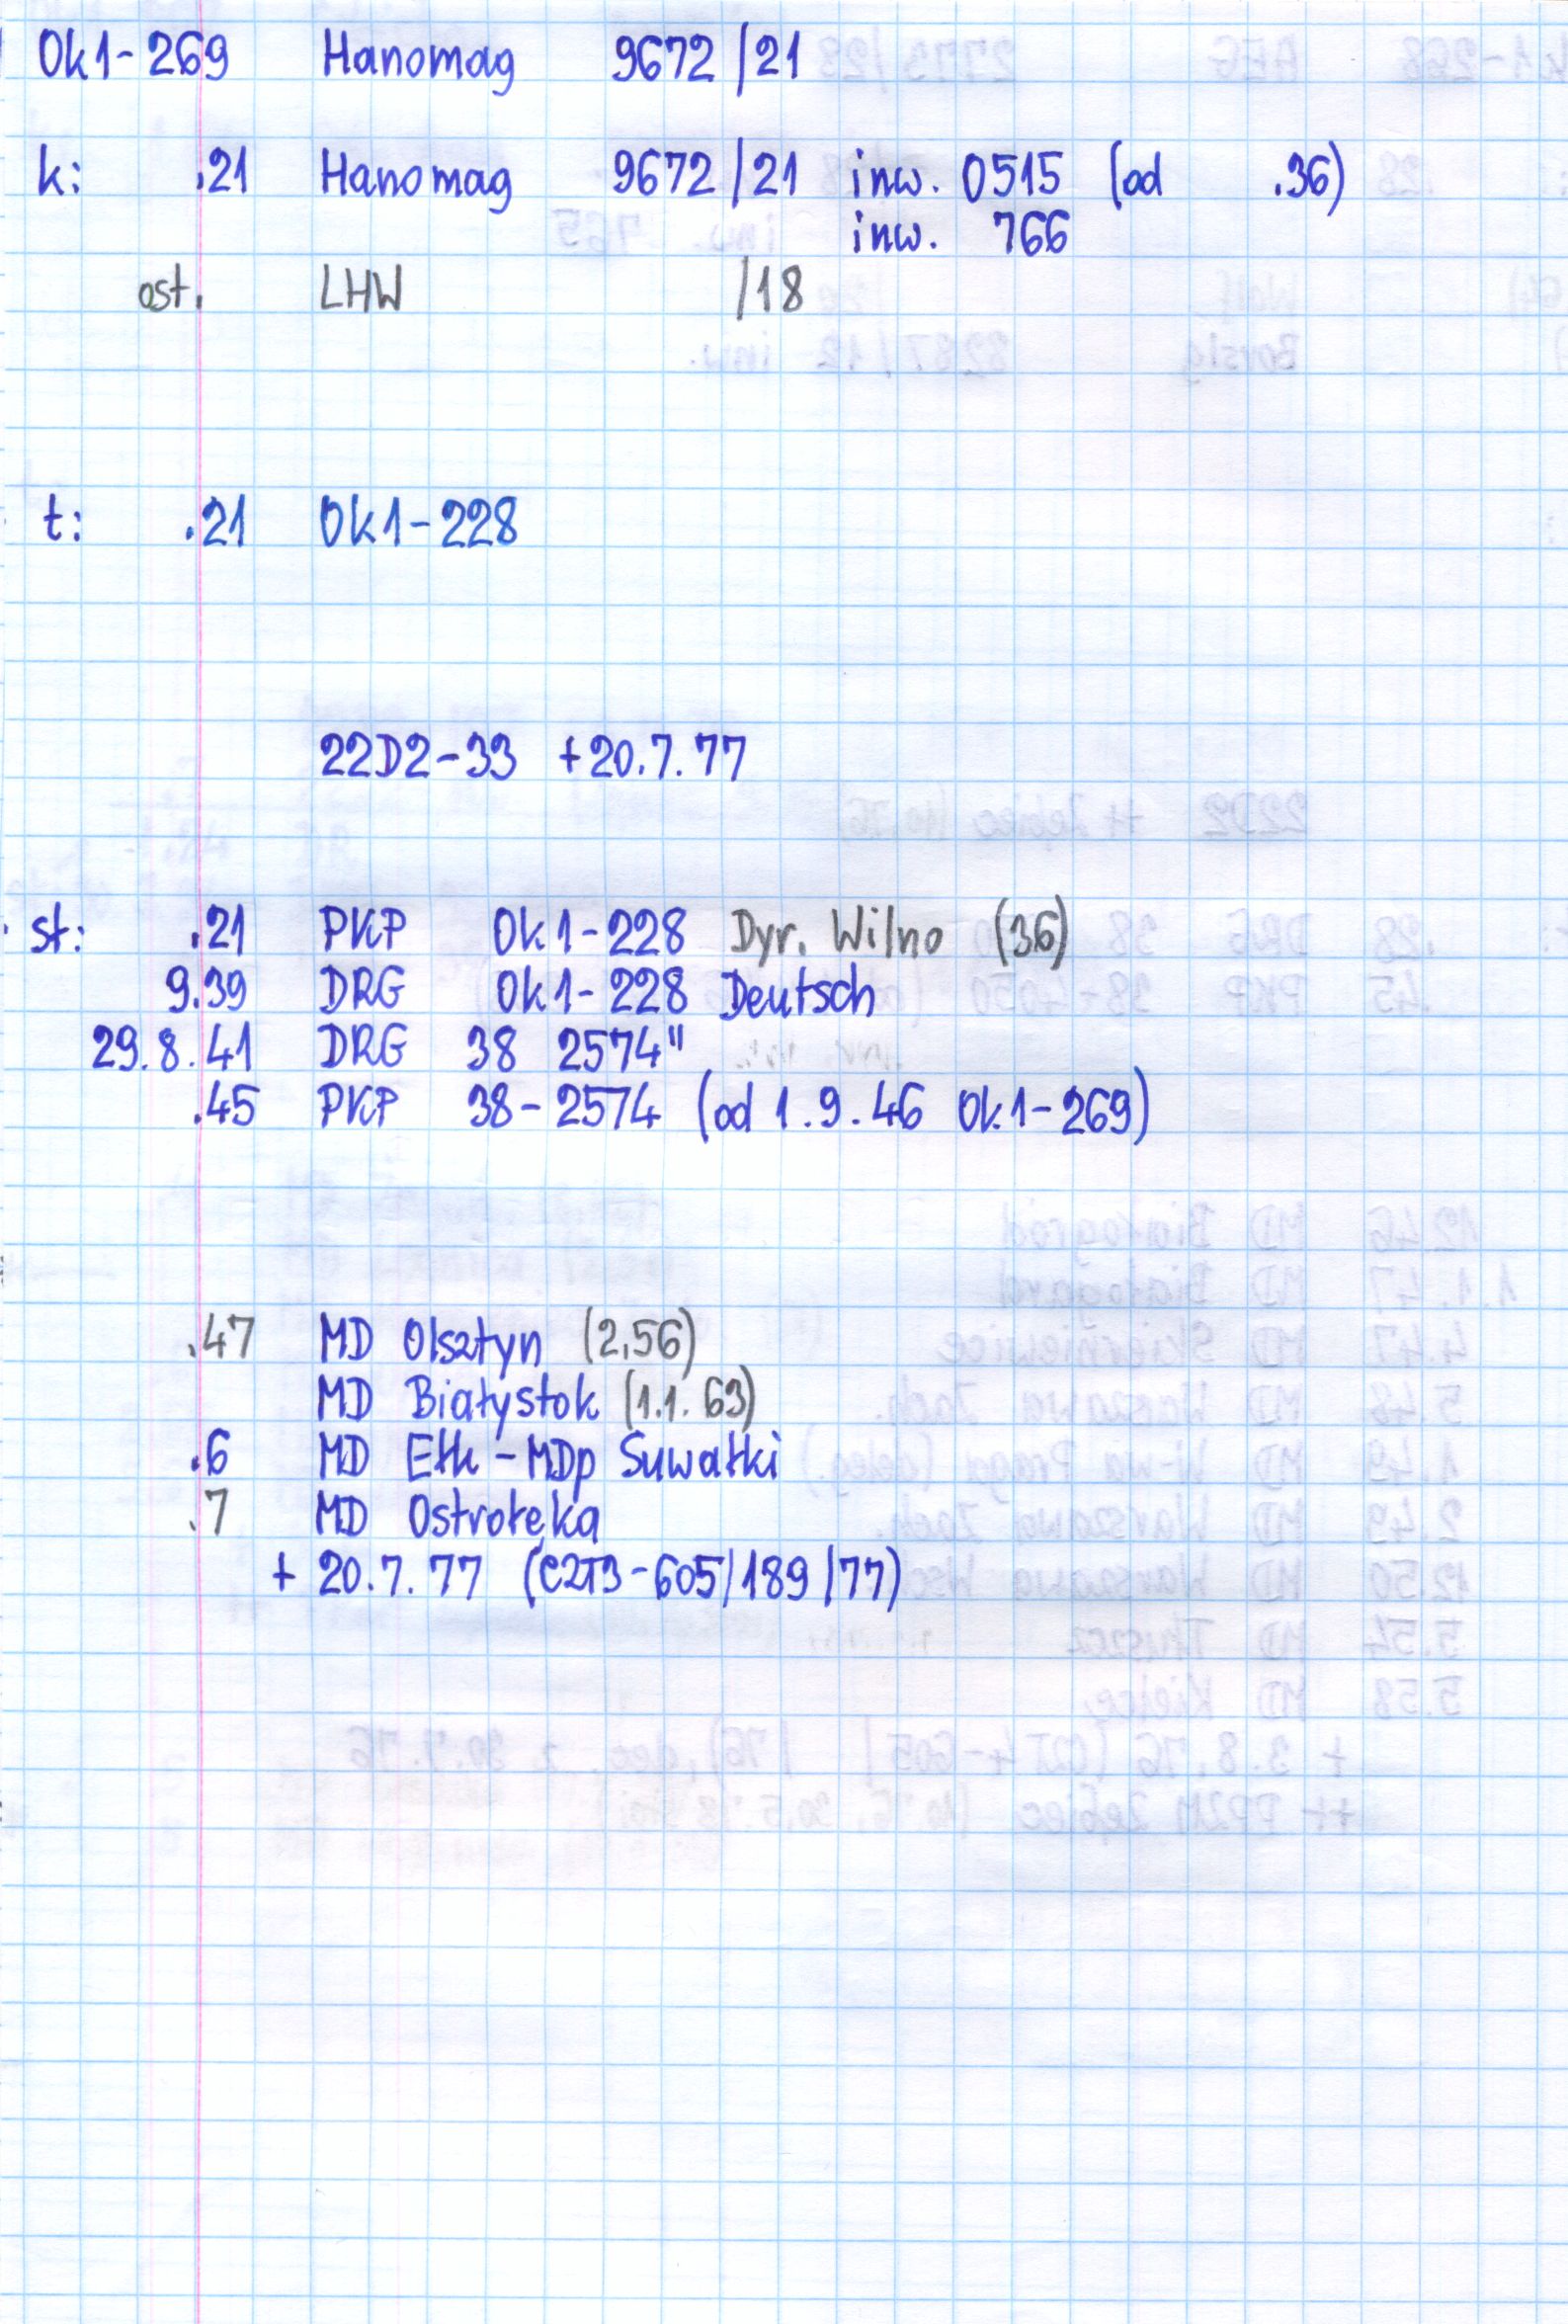 Ok1-269 Hanomag 9672/21
k: .21 Hanomag 9672/21 inw. 0515 (od .36)
inw. 766
ost. LHW /18
t: .21 Ok1-228
22D2-33 +20.7.77
st: .21 PKP Ok1-228 Dyr. Wilno (36)
9.39 DRG Ok1-228 Deutsch
29.8.41 DRG 38 2574"
.45 PKP 38-2574 (od 1.9.46 Ok1-269)
.47 MD Olsztyn (2.56)
MD Białystok (1.1.63)
.6 MD Ełk - MDp Suwałki
.7 MD Ostrołęka
+ 20.7.77 (C2T3-605/189/77)